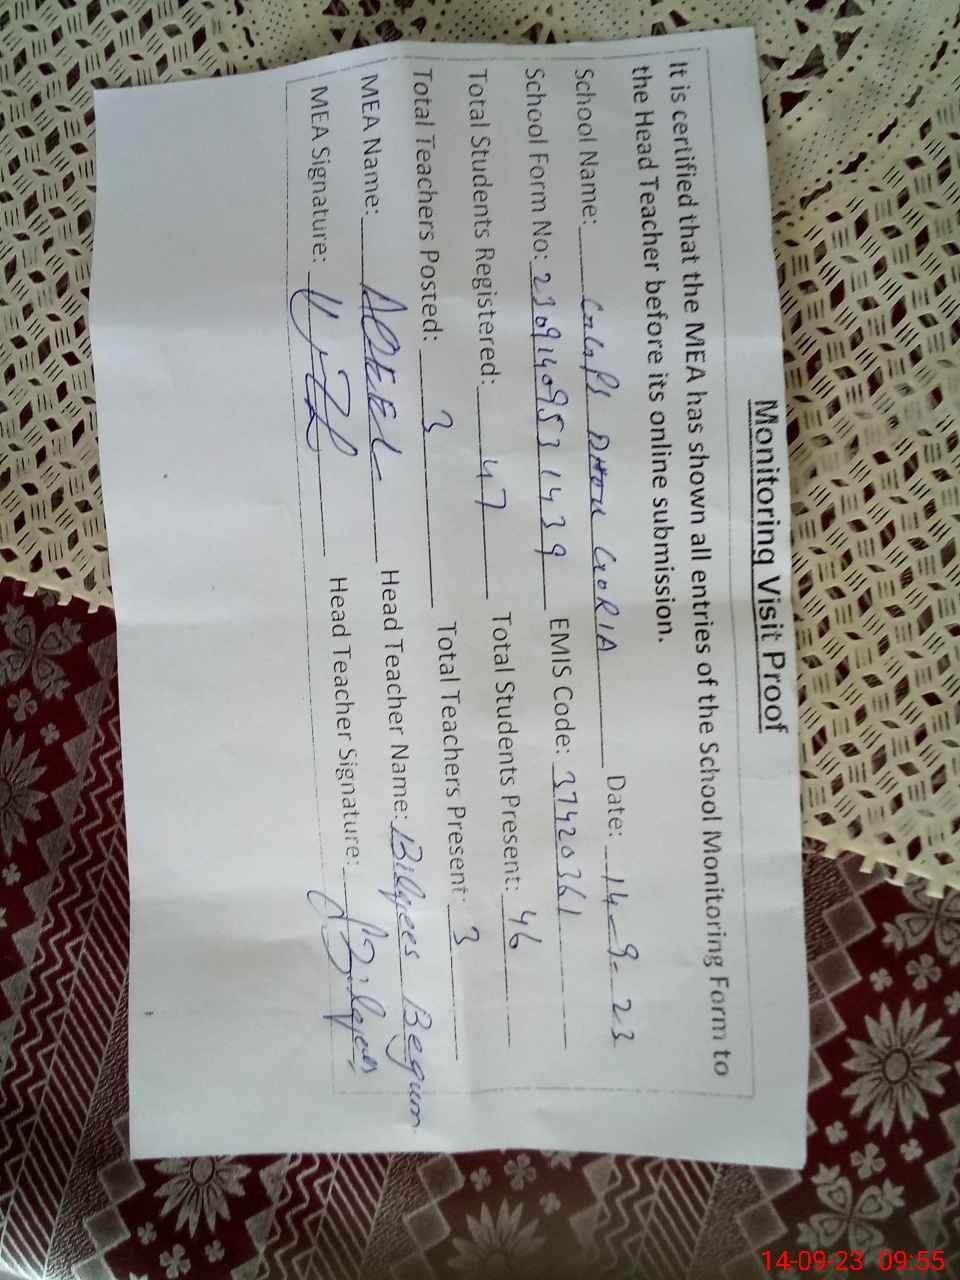 Monitoring Visit Proof
It is certified that the MEA has shown all entries of the School Monitoring Form to
the Head Teacher before its online submission.
School Name: GGPS DHOK GORIA Date: 14-9-23
School Form No: 23091409531439 EMIS Code: 37420361
Total Students Registered: 47 Total Students Present: 46
Total Teachers Posted: 3 Total Teachers Present: 3
MEA Name: AQEEL Head Teacher Name: Bilqees Begum
MEA Signature: Head Teacher Signature: Bilqees
14-09-23 09:55